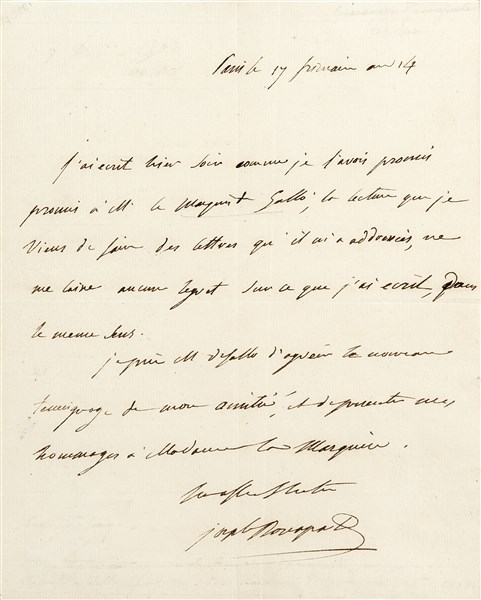 Paris le 17 frimaire an 14
J'ai ecrit hier soir comme je l'avois promis
promis à M. le Marquis de Gallo, la lecture que je
viens de faire des lettres qu'il m'a addressées, ne
me laisse aucun regret sur ce que j'ai ecrit, dans
le meme sens.
je prie M de Gallo d'agréer le nouveau
temoignage de mon amitié, et de presenter mes
hommages à Madame la Marquise.
joseph Bonaparte